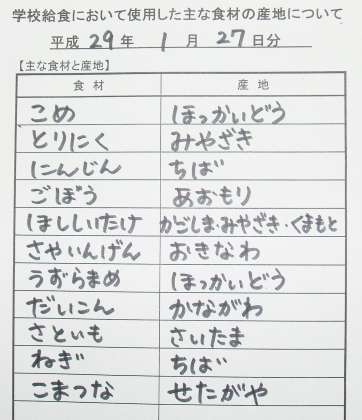 学校給食において使用した主な食材の産地について
平成 29 年 1 月 27 日分
【主な食材と産地】
食材 産地
こめ ほっかいどう
とりにく みやざき
にんじん ちば
ごぼう あおもり
ほししいたけ かごしま・みやざき・くまもと
さやいんげん おきなわ
うずらまめ ほっかいどう
だいこん かながわ
さといも さいたま
ねぎ ちば
こまつな せたがや